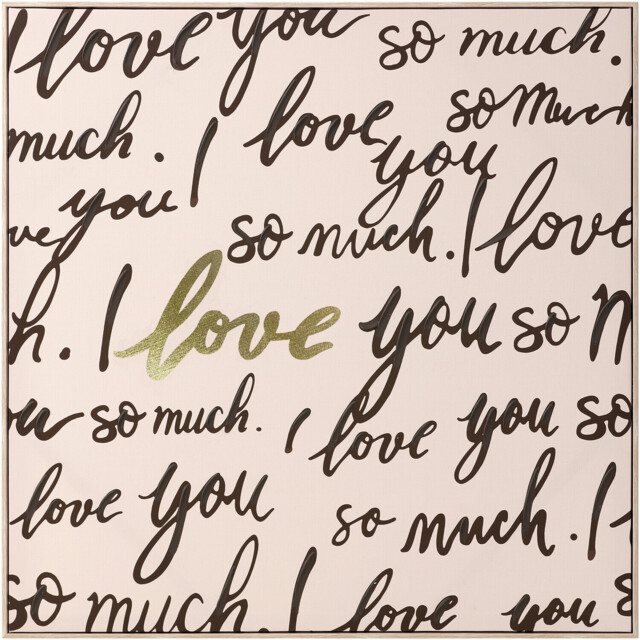 I love you so much.
much. I love you so much
ve you so much. I love
h. I love you so m
ou so much. I love you so
love you so much. I
so much. I love you s